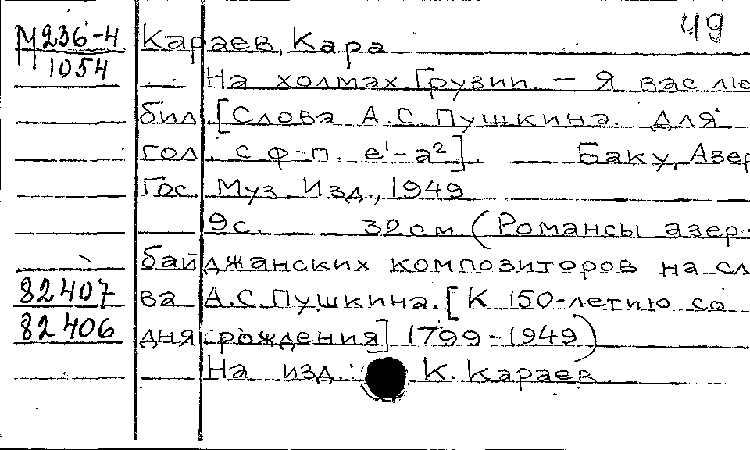 49
М 236-4 Караев, Кара
1054
На холмах Грузии. – Я вас лю
бил. [Слова А.С. Пушкина. Для
гол. с ф-п. e¹-a²]. — Баку, Азер
Гос. Муз. Изд., 1949
9с. 30см (Романсы азер-
байджанских композиторов на сл
82407 ва А.С. Пушкина. [К 150-летию со
82406 дня рождения] 1799-1949)
На изд.: К. Караев